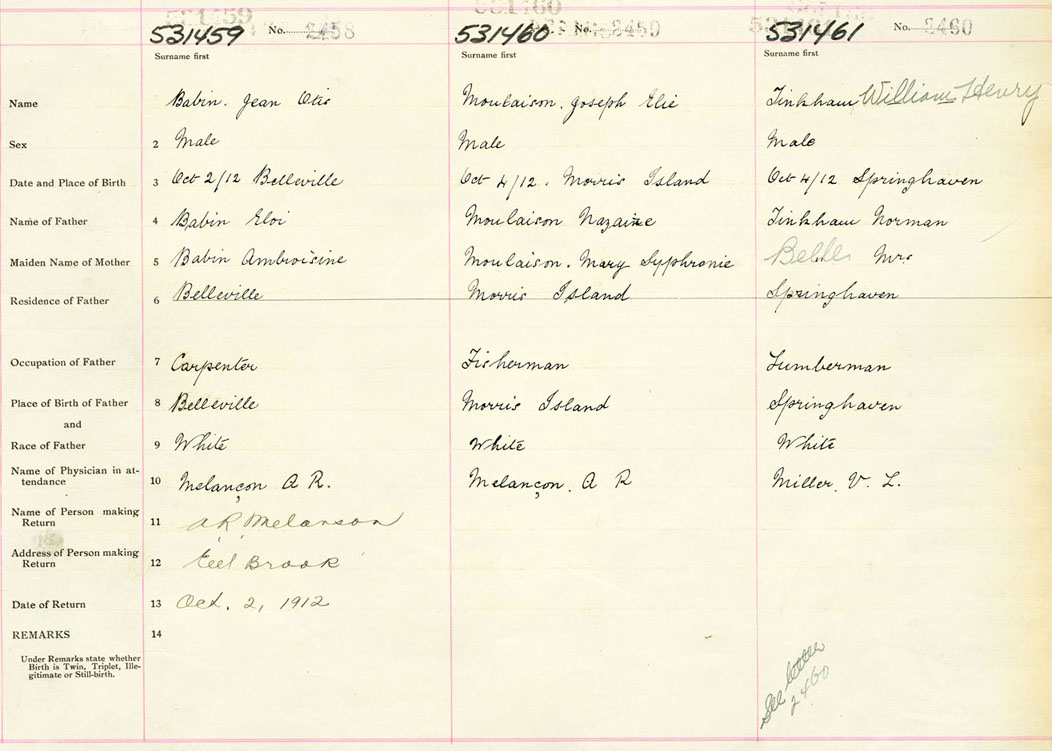 531459 No. 2458 531460 No. 2459 531461 No. 2460
Surname first Surname first Surname first
Name Babin. Jean Otis Moulaison, Joseph Elie Tinkham William Henry
Sex 2 Male Male Male
Date and Place of Birth 3 Oct 2/12 Belleville Oct 4/12. Morris Island Oct 4/12 Springhaven
Name of Father 4 Babin Eloi Moulaison Nazaire Tinkham Norman
Maiden Name of Mother 5 Babin Ambroisine Moulaison. Mary Syphronie Mrs
Residence of Father 6 Belleville Morris Island Springhaven
Occupation of Father 7 Carpenter Fisherman Lumberman
Place of Birth of Father 8 Belleville Morris Island Springhaven
and
Race of Father 9 White White White
Name of Physician in at-
tendance 10 Melançon A R. Melançon. A R Miller, V. L.
Name of Person making
Return 11 A R Melanson
Address of Person making
Return 12 Eel Brook
Date of Return 13 Oct. 2, 1912
REMARKS 14
Under Remarks state whether
Birth is Twin, Triplet, Ille-
gitimate or Still-birth.
See letter
2460